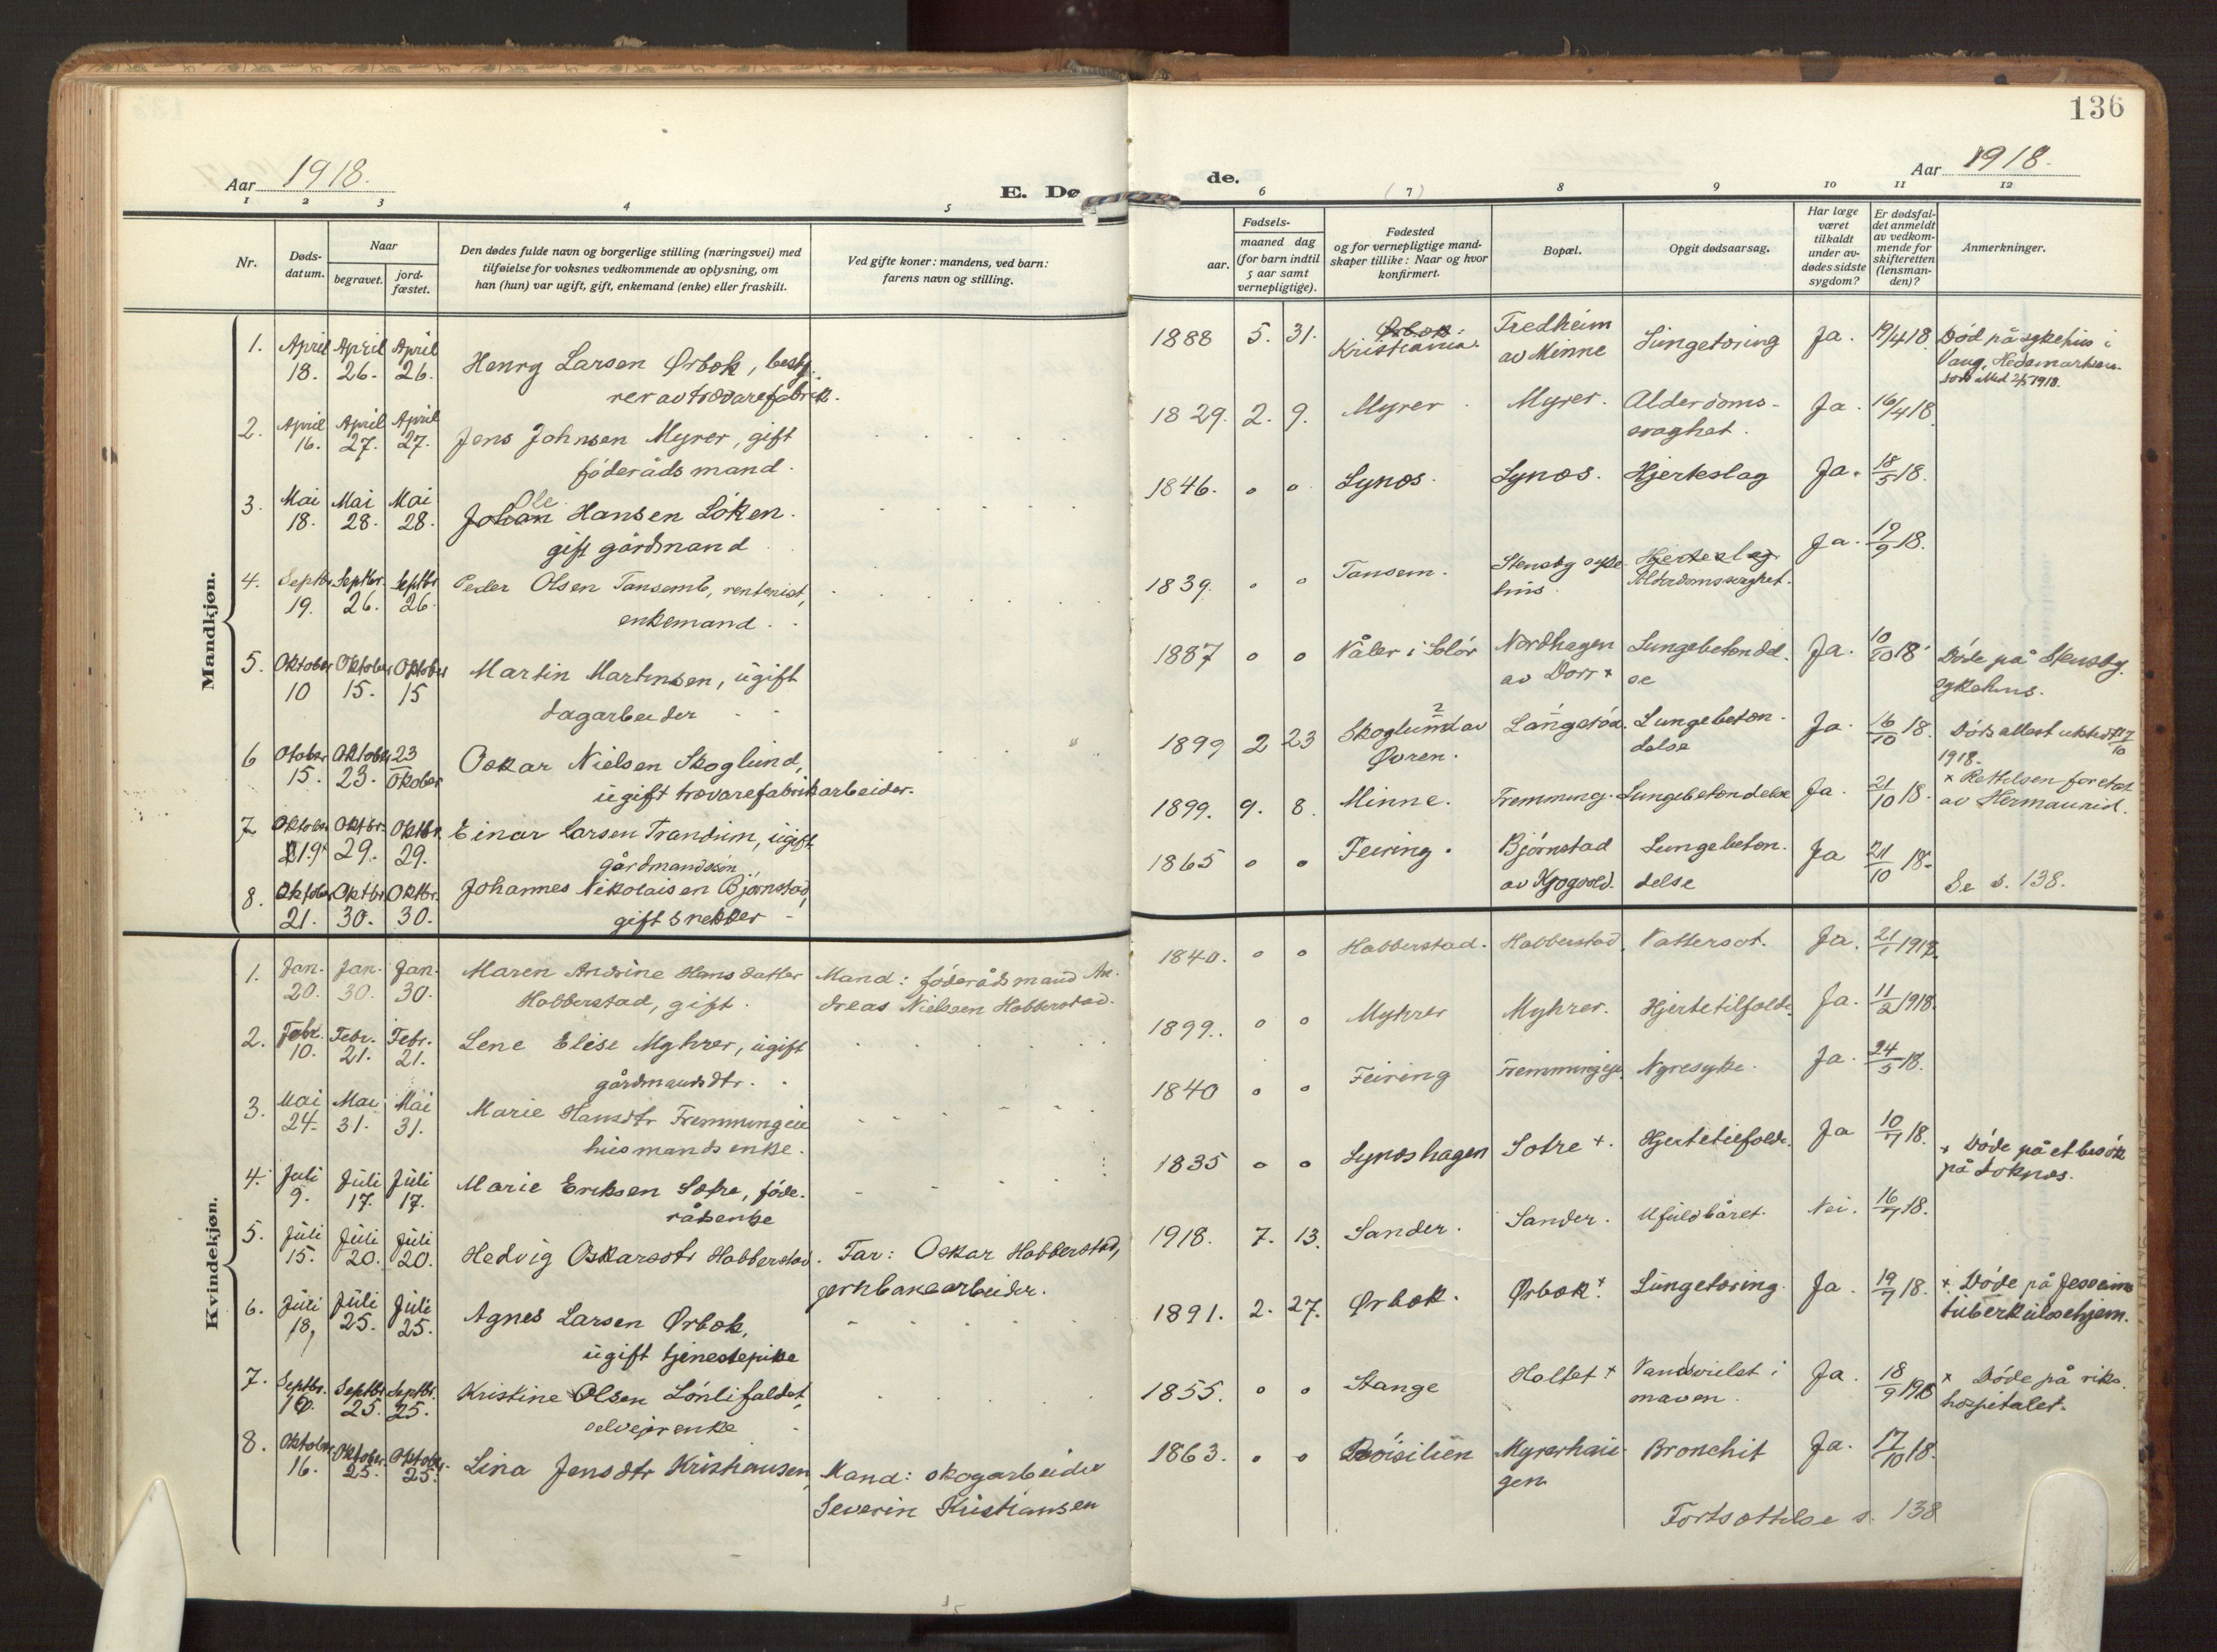 136
Aar 1918.
E. Dø
1 2 3 4 5
Nr.
Døds-
datum.
Naar
begravet.
jord-
fæstet.
Den dødes fulde navn og borgerlige stilling (næringsvei) med
tilføielse for voksnes vedkommende av oplysning, om
han (hun) var ugift, gift, enkemand (enke) eller fraskilt.
Ved gifte koner: mandens, ved barn:
farens navn og stilling.
Mandkjøn.
1. April April April
18. 26. 26.
Henry Larsen Ørbæk, besty-
rer av trævarefabrik.
2. April April April
16. 27. 27.
Jens Johnsen Myrer, gift
føderådsmand.
3. Mai Mai Mai
18. 28. 28.
Ole
Johan Hansen Løken.
gift gårdmand
4. Septbr. Septbr. Septbr
19. 26. 26.
Peder Olsen Tansemb, rentenist,
enkemand.
5. Oktober Oktober Oktober
10 15. 15
Martin Martinsen, ugift
dagarbeider
6 Otober Oktober 23
15. 23. Oktober
Oskar Nielsen Skoglund,
ugift trævarefabrikarbeider.
7 Oktober Oktbr. Oktbr.
19. 29. 29.
Einar Larsen Trandum, ugift
gårdmandssøn
8. Oktober Oktbr. Oktbr.
21. 30. 30.
Johannes Nikolaisen Bjørnstad,
gift snekker
Kvindekjøn.
1. Jan. Jan. Jan.
20. 30. 30.
Maren Andrine Hansdatter
Habberstad, gift.
Mand: føderådsmand An-
dreas Nielsen Habberstad.
2. Febr. Febr. Febr.
10. 21. 21.
Lene Elise Myhrer, ugift
gårdmandsdtr.
3. Mai Mai Mai
24. 31. 31.
Marie Hansdtr Fremmingeie
husmandsenke.
4. Juli Juli Juli
9. 17. 17.
Marie Eriksen Sætre, føde-
rådsenke
5. Juli Juli Juli
15. 20. 20.
Hedvig Oskarsdtr Habberstad.
Far: Oskar Habberstad,
jernbanearbeider.
6. Juli Juli Juli
18, 25. 25.
Agnes Larsen Ørbæk,
ugift tjenestepike
7. Septbr. Septbr. Septbr.
16. 25. 25.
Kristine Olsen Lønlifaldet,
selveierenke
8. Oktober Oktober Oktober
16. 25. 25.
Lina Jensdtr Kristiansen,
Mand: skogarbeider
Severin Kristiansen
de.
Aar 1918.
6 (7) 8 9 10 11 12
Fødsels-
aar.
maaned dag
(for barn indtil
5 aar samt
vernepligtige).
Fødested
og for vernepligtige mand-
skaper tillike: Naar og hvor
konfirmert.
Bopæl.
Opgit dødsaarsag.
Har læge
været
tilkaldt
under av-
dødes sidste
sygdom?
Er dødsfal-
det anmeldt
av vedkom-
mende for
skifteretten
(lensman-
den)?
Anmerkninger.
1888 5. 31. Ørbæk. Kristiania. Fredheim av Minne Lungetæring Ja. 19/4 18. Død på sykehus i
Vang, Hedemarken.
1829. 2. 9. Myrer Myrer. Alderdoms-
svaghet. Ja. 16/4 18
1846. o o Lynæs. Lynæs. Hjerteslag Ja. 18/5 18.
1839. o o Tansem. Stensby syke-
hus. Hjerteslag
Alderdomssvaghet. Ja. 19/9 18.
1887 o o Våler i Solør Nordhagen
av Dorr + Lungebetændel-
se Ja. 10/10 18 Døde på Stensby
sykehus.
1899 2 23 Skoglund av
Øvren. Lungebetæn-
delse Ja. 16/10 18. Dødsattest utstedt 17/10
1918.
1899. 9. 8. Minne. Fremming. Lungebetændelse Ja. 21/10 18. × Rettelsen foretat
av Hermanrud.
1865 o o Feiring. Bjørnstad Lungebetæn-
delse Ja 21/10 18. Se s. 138.
1840. o o Habberstad. Habberstad. Vattersot. Ja. 21/1 1918.
1899. o o Myhrer Myhrer. Hjertetilfælde Ja. 11/2 1918.
1840 o o Feiring Fremmingeje. Nyresyke. Ja. 24/5 18.
1835 o o Lynæshagen Sætre +. Hjertetilfælde. Ja 10/7 18. + Døde på et besøk
på Loknæs.
1918. 7. 13. Sander. Sander. Ufuldbåret. Nei. 16/7 18.
1891. 2. 27. Ørbæk. Ørbæk +. Lungetæring. Ja. 19/7 18. + Døde på Jessheim
tuberkulosehjem.
1855. o o Stange Holtet + Vandsvulst i
maven. Ja. 18/9 1918 × Døde på riks-
hospitalet.
1863. o o Røisilien Myrerhau-
gen Bronchit Ja. 17/10 18.
Fortsættelse s. 138